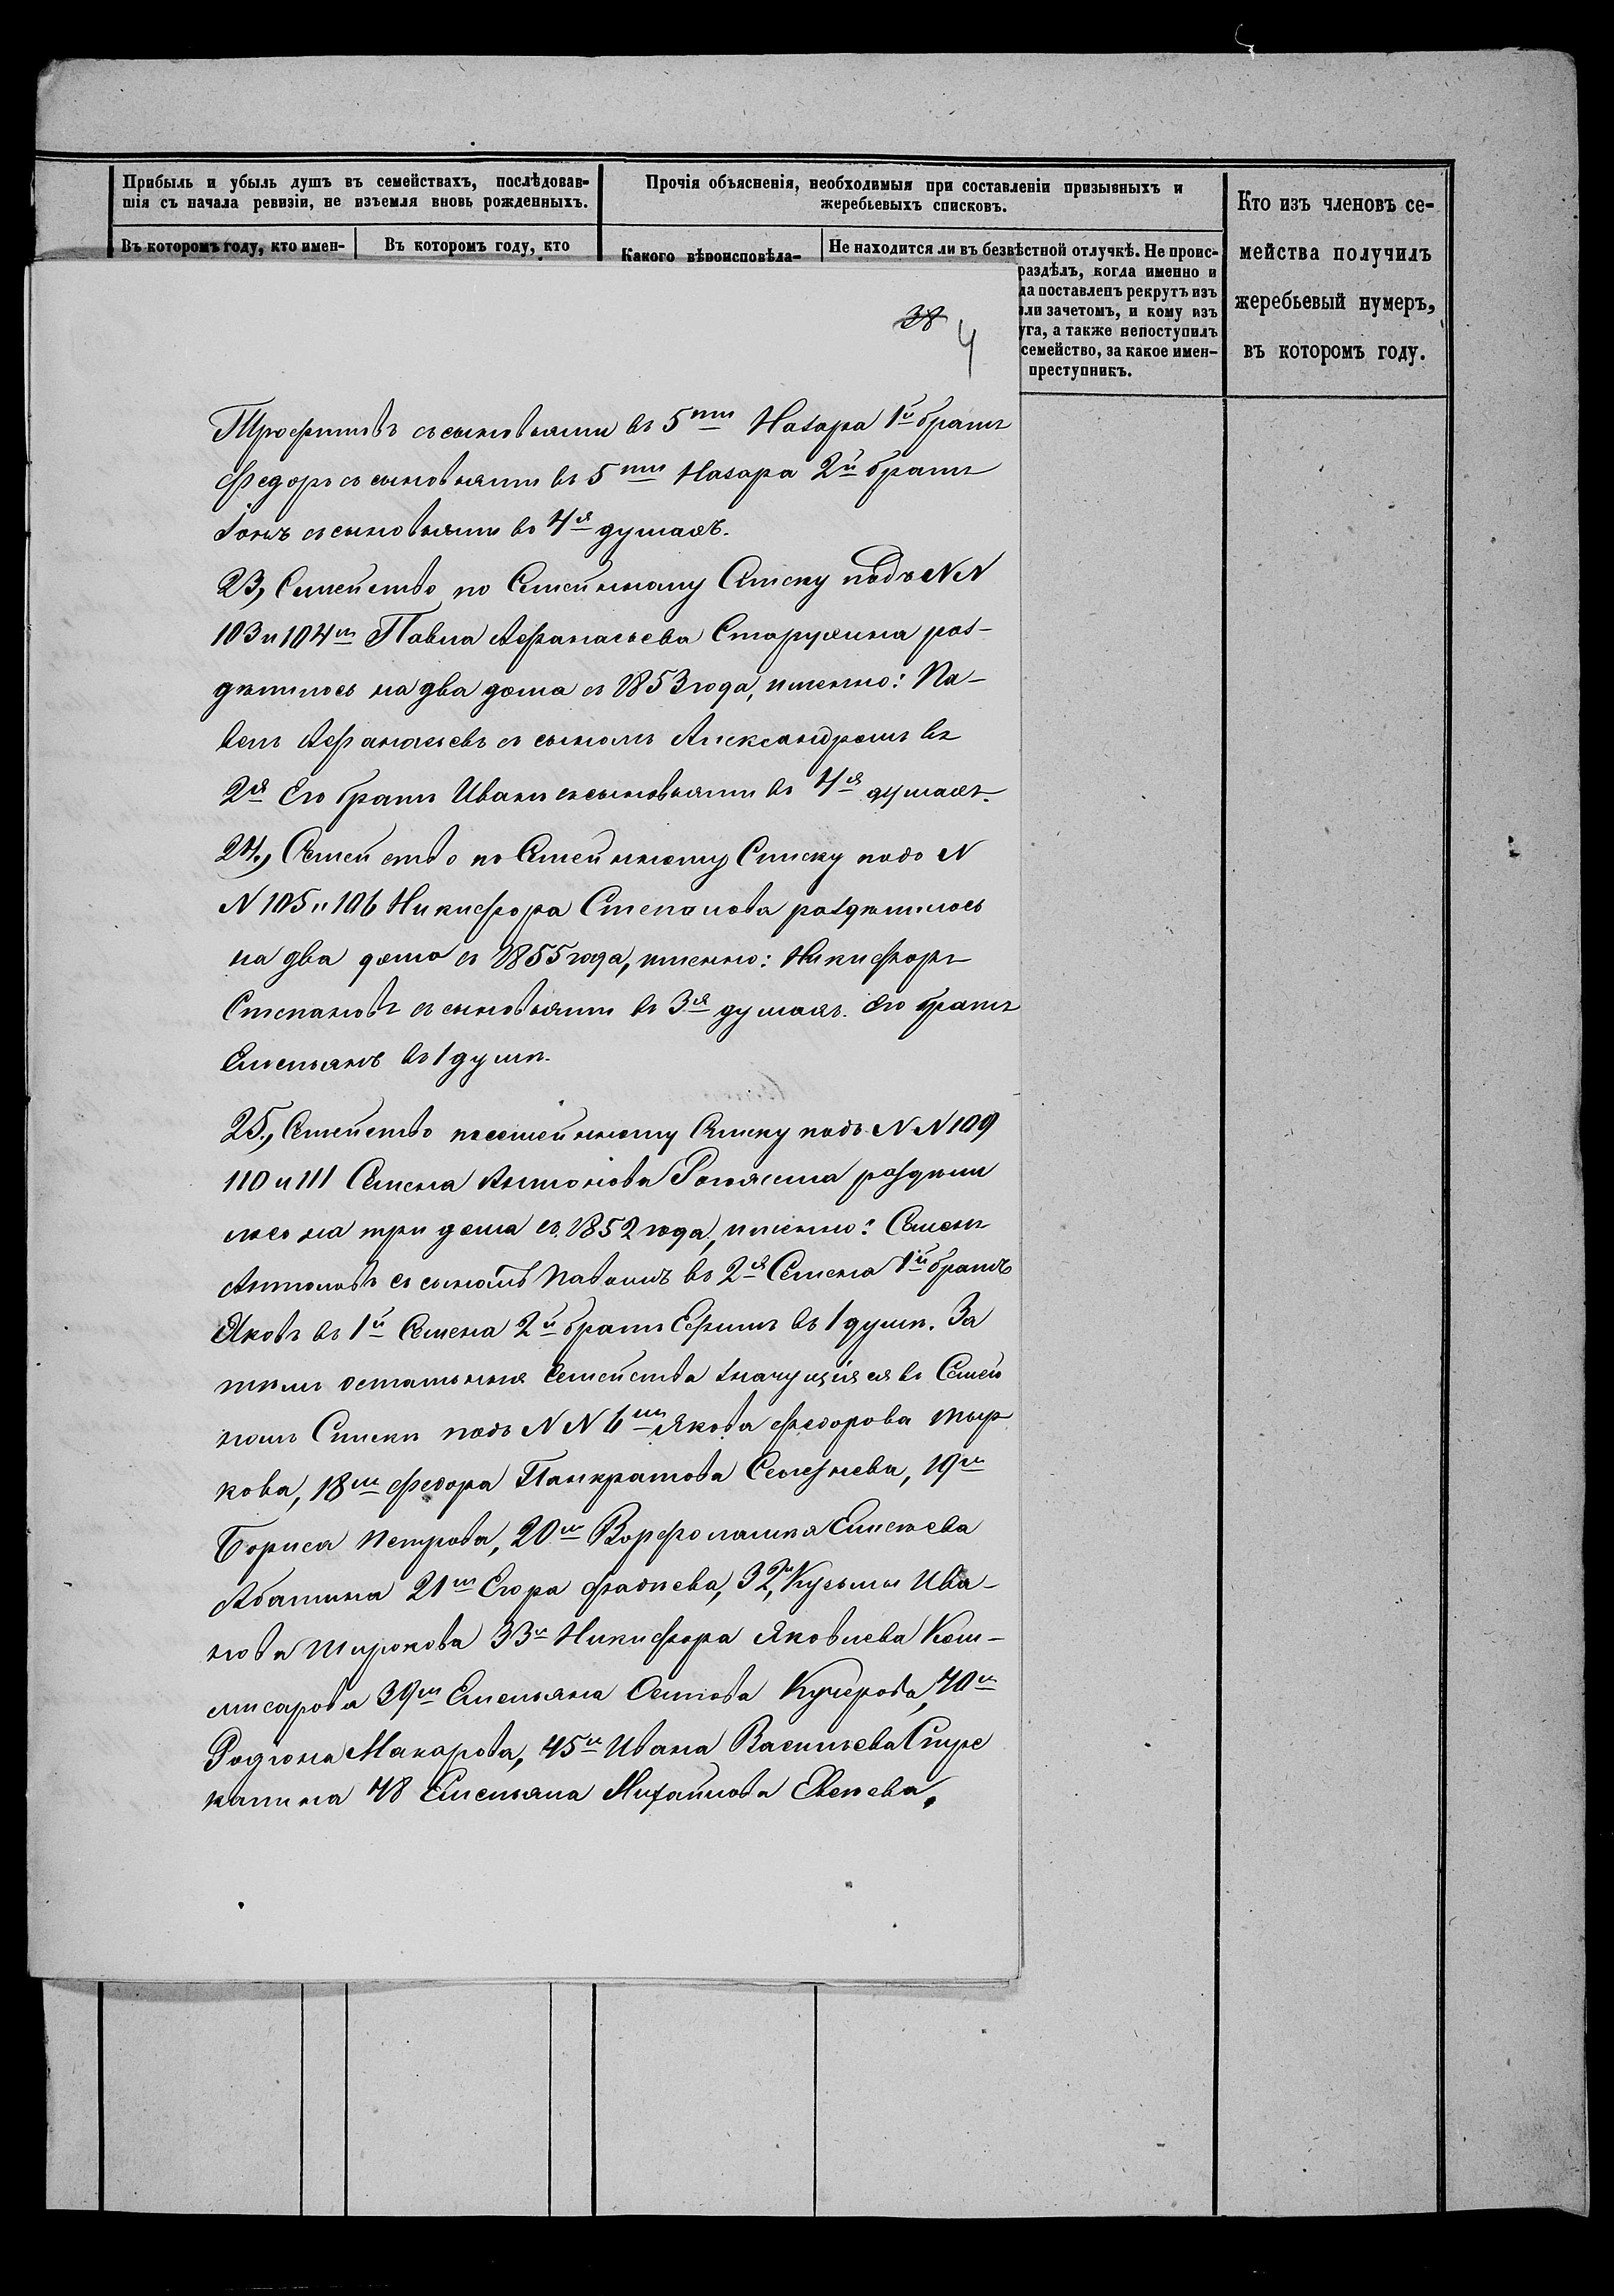 Прибыль и убыль душъ въ семействахъ, послѣдовав-
шія съ начала ревизіи, не изъемля вновь рожденныхъ.
Въ которомъ году, кто имен-
Въ которомъ году, кто
Прочія объясненія, необходимыя при составленіи призывныхъ и
жеребьевыхъ списковъ.
Какого вѣроисповѣда-
Не находится ли въ безвѣстной отлучкѣ. Не проис-
раздѣлъ, когда именно и
да поставленъ рекрутъ изъ
ли зачетомъ, и кому изъ
уга, а также непоступилъ
семейство, за какое имен-
преступникъ.
Кто изъ членовъ се-
мейства получилъ
жеребьевый нумеръ,
въ которомъ году.
38
4
Трофимовъ съ сыновьями въ 5ти Назара 1й братъ
Федоръ съ сыновьями въ 5ти Назара 2й братъ
Іонъ съ сыновьями въ 4х душахъ.
23, Семейство по Семейному Списку подъ NN
103 и 104м Павла Афанасьева Старухина раз-
дѣлилось на два дома съ 1853 года, именно: Па-
велъ Афанасьевъ съ сыномъ Александромъ въ
2х Его братъ Иванъ съ сыновьями въ 4х душахъ.
24., Семейство по Семейному Списку подъ N
N 105 и 106 Никифора Степанова раздѣлилось
на два дома съ 1855 года, именно: Никифоръ
Степановъ съ сыновьями въ 3х душахъ. Его братъ
Емельянъ въ 1 душѣ.
25., Семейство по семейному Списку подъ NN 109
110 и 111 Семена Антонова раздѣли
лось на три дома съ 1852 года, именно: Семенъ
Антоновъ съ сыномъ Павломъ въ 2х Семена 1й братъ
Яковъ въ 1й Семена 2й братъ Ефимъ въ 1 душѣ. За
тѣмъ остальныя Семейства значущіяся въ Семей
номъ Списки подъ NN 6м Якова Федорова Тыр
кова, 18м Федора Панкратова Селезнева, 19м
Бориса Петрова, 20м Ворфоламея Елисеева
Абатина 21м Егора Фадѣева, 32м, Кузьмы Ива-
нова Широкова 33м Никифора Яковлева Ком-
мисарова 39м Емельяна Осипова Кучерова, 40м
Родіона Макарова, 45м Ивана Васильева Стре
калина 48 Емельяна Михайлова Евсѣева,